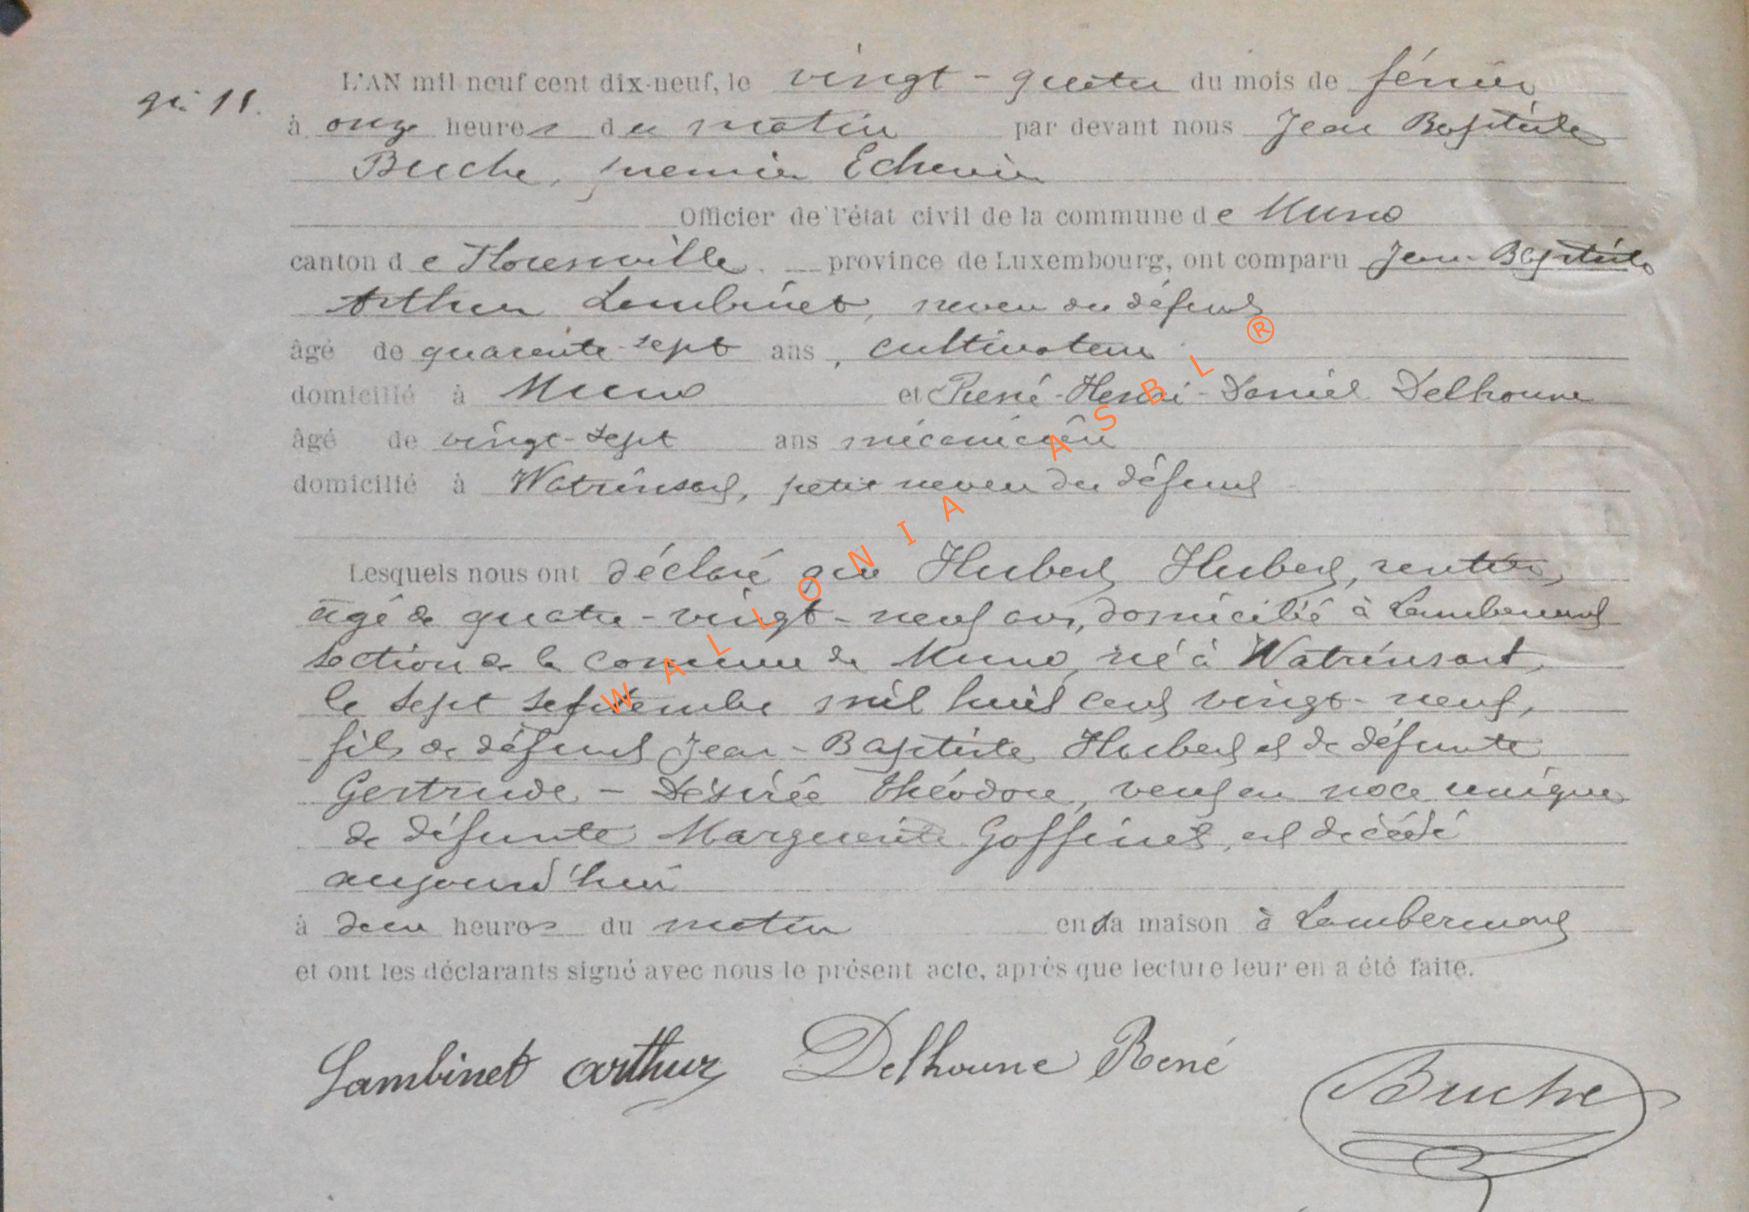 L'AN mil neuf cent dix-neuf, le vingt-quatre du mois de février
à onze heures du matin par devant nous Jean Baptiste
Buche, premier Echevin
Officier de l'état civil de la commune de Muno
canton de Florenville. province de Luxembourg, ont comparu Jean-Baptiste
Arthur Lambinet, neveu du défunt
âgé de quarante-sept ans, cultivateur
domicilié à Muno et René-Henri-Daniel Delhoune
âgé de vingt-sept ans mécanicien
domicilié à Watrinsart, petit neveu du défunt
Lesquels nous ont déclaré que Hubert Hubert, rentier,
âgé de quatre-vingt-neuf ans, domicilié à Lambermont
section de la commune de Muno, né à Watrinsart,
le sept septembre mil huit cent vingt-neuf,
fils de défunt Jean-Baptiste Hubert et de défunte
Gertrude-Désirée Théodore, veuf en noce unique
de défunte Marguerite Goffinet, est décédé
aujourd'hui
à deux heures du matin en sa maison à Lambermont
et ont les déclarants signé avec nous le présent acte, après que lecture leur en a été faite.
Lambinet arthur Delhoune René
Buche
WALLONIA ASBL ®